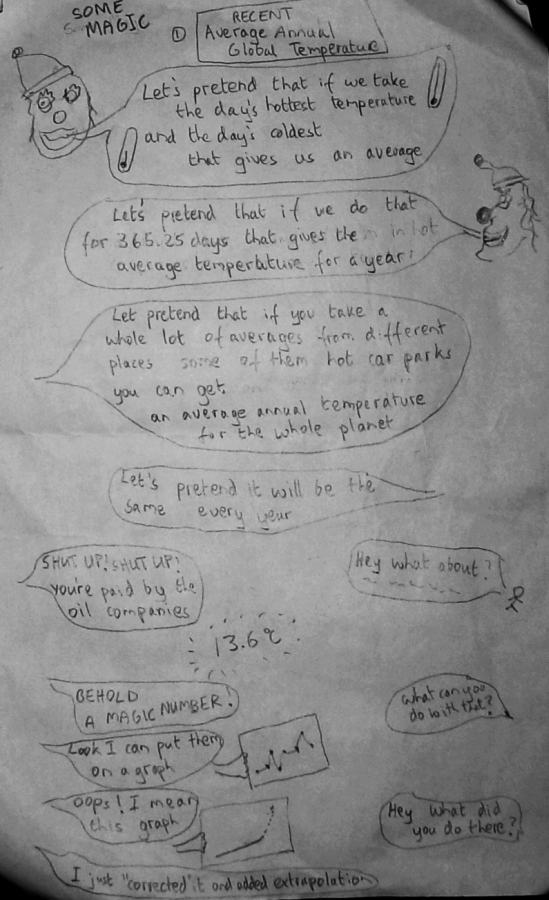 SOME
MAGIC
① RECENT
Average Annual
Global Temperature
Let's pretend that if we take
the day's hottest temperature
and the day's coldest
that gives us an average
Let's pretend that if we do that
for 365.25 days that gives the in hot
average temperature for a year!
Let pretend that if you take a
whole lot of averages from different
places some of them hot car parks
you can get
an average annual temperature
for the whole planet
Let's
pretend it will be the
same every year
Hey what about?
SHUT UP! SHUT UP!
you're paid by the
oil companies
13.6°C
BEHOLD
A MAGIC NUMBER!
What can you
do with that?
Look I can put them
on a graph
Oops! I mean
this graph
Hey what did
you do there?
I just "corrected" it and added extrapolation